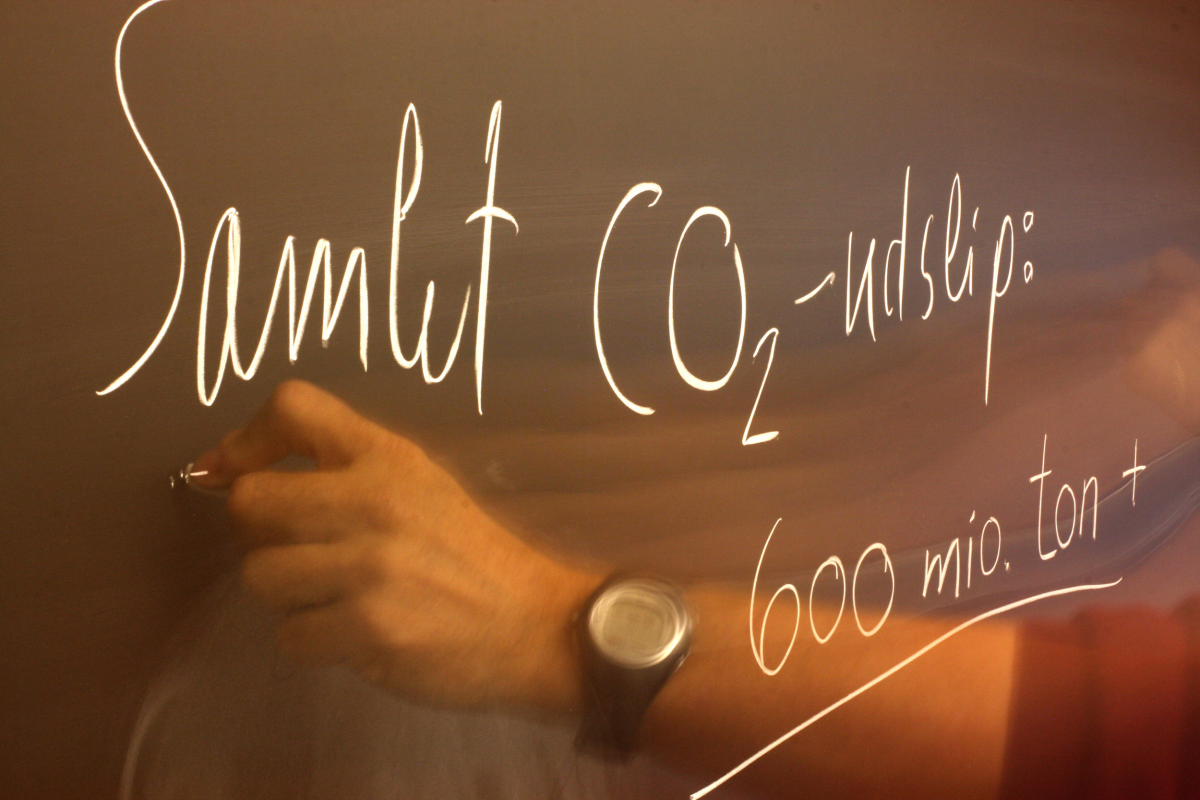 Samlet CO₂-udslip:
600 mio. ton +